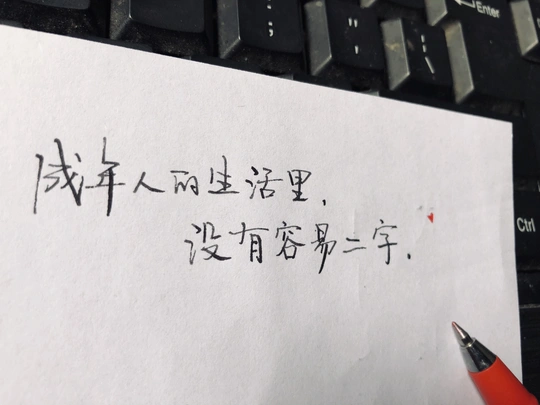 : ;
" '
| \
Enter
Ctrl
成年人的生活里,
没有容易二字.